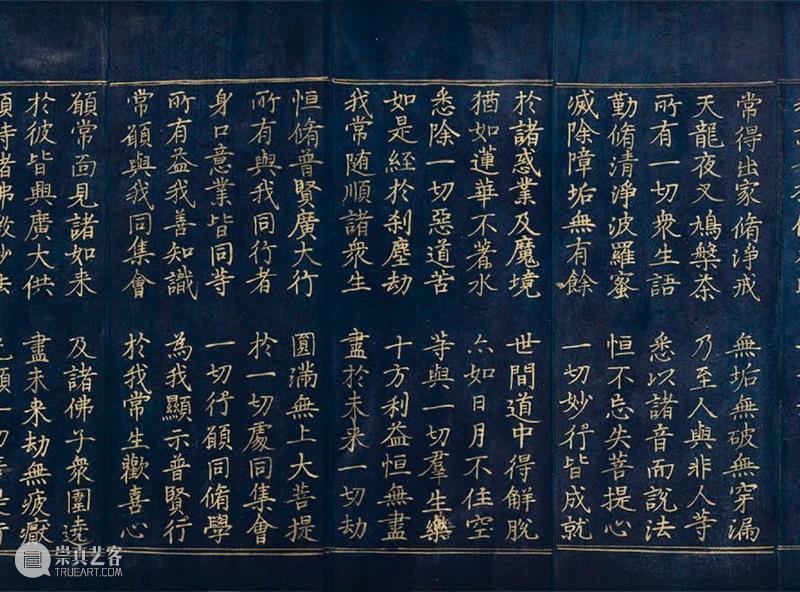 常得出家脩淨戒 無垢無破無穿漏
天龍夜叉鳩槃荼 乃至人與非人等
所有一切衆生語 悉以諸音而說法
勤脩清淨波羅蜜 恒不忘失菩提心
滅除障垢無有餘 一切妙行皆成就
於諸惑業及魔境 世間道中得解脫
猶如蓮華不著水 亦如日月不住空
悉除一切惡道苦 等與一切羣生樂
如是經於刹塵劫 十方利益恒無盡
我常随順諸衆生 盡於未来一切劫
恒脩普賢廣大行 圓滿無上大菩提
所有與我同行者 於一切處同集會
身口意業皆同等 一切行願同脩學
所有益我善知識 為我顯示普賢行
常願與我同集會 於我常生歡喜心
願常面見諸如来 及諸佛子衆圍遶
於彼皆興廣大供 盡未来劫無疲厭
崇真艺客
TRUEART.COM